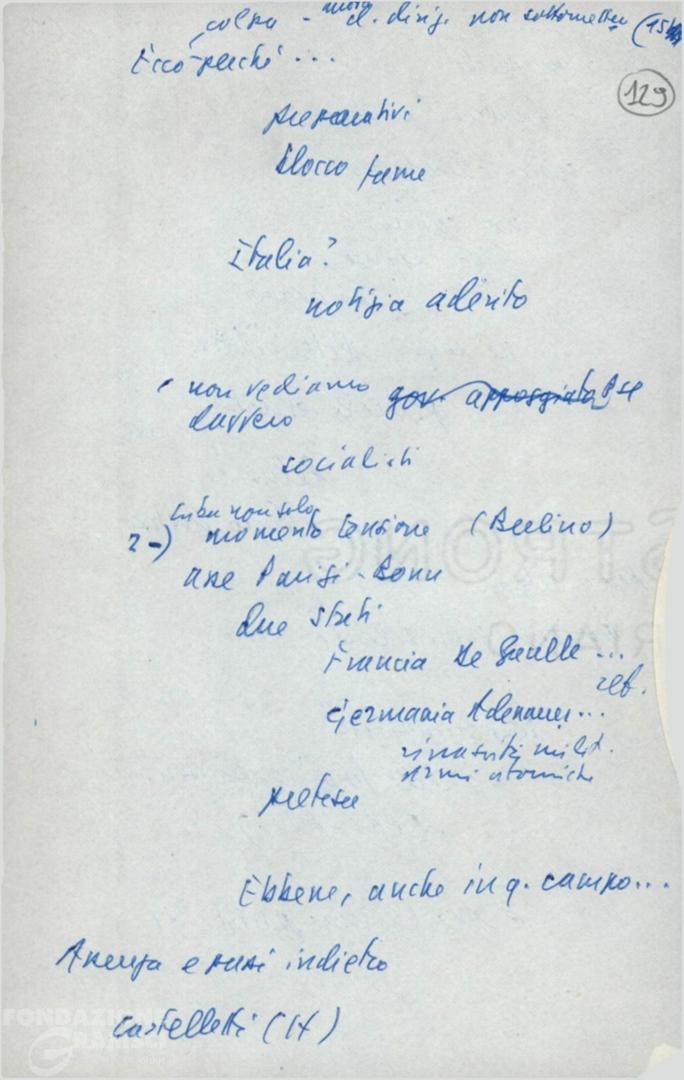 colpa - d. dirig. non sottomettere (15
Ecco perché ...
129
preparativi
blocco fame
Italia?
notizia aderito
non vediamo gov. appoggiato P se
davvero
socialisti
Cuba non solo
2-) momento tensione (Berlino)
asse Parigi-Bonn
due stati
Francia De Gaulle ...
ref.
Germania Adenauer...
rinascita milit.
armi atomiche
pretese
Ebbene, anche in q. campo...
Assenza e passi indietro
Castelletti (14)
FONDAZIONE
GRAMSCI